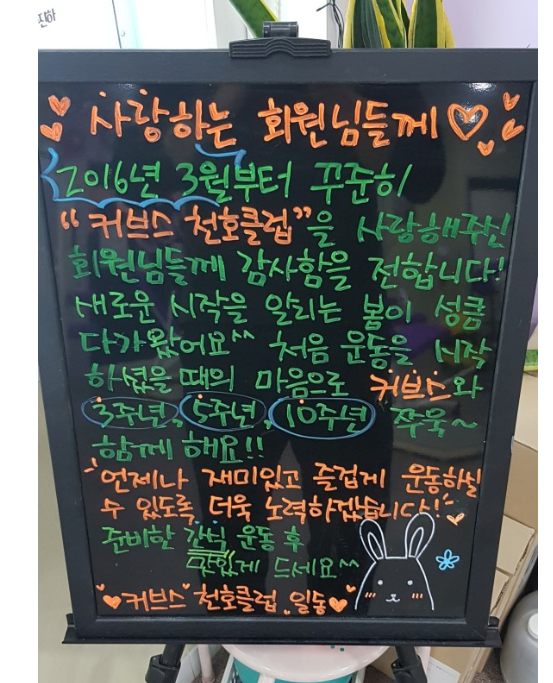 사랑하는 회원님들께
2016년 3월부터 꾸준히
"커브스 천호클럽"을 사랑해주신
회원님들께 감사함을 전합니다!
새로운 시작을 알리는 봄이 성큼
다가왔어요^^ 처음 운동을 시작
하셨을 때의 마음으로 커브스와
3주년, 5주년, 10주년 쭈욱~
함께 해요!!
언제나 재미있고 즐겁게 운동하실
수 있도록 더욱 노력하겠습니다!
준비한 간식 운동 후
맛있게 드세요^^
커브스 천호클럽 일동